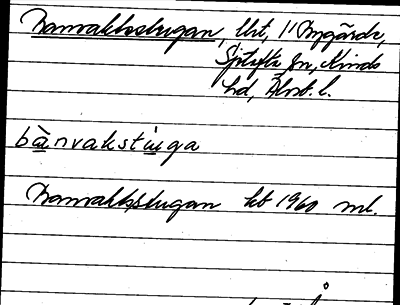 Banvaktsstugan, lht, 11 Bygärde,
Sjötofta sn, Kinds
hd, Älvsb. l.
bànvakstu̲ga
Banvaktsstugan kt 1960 ml.